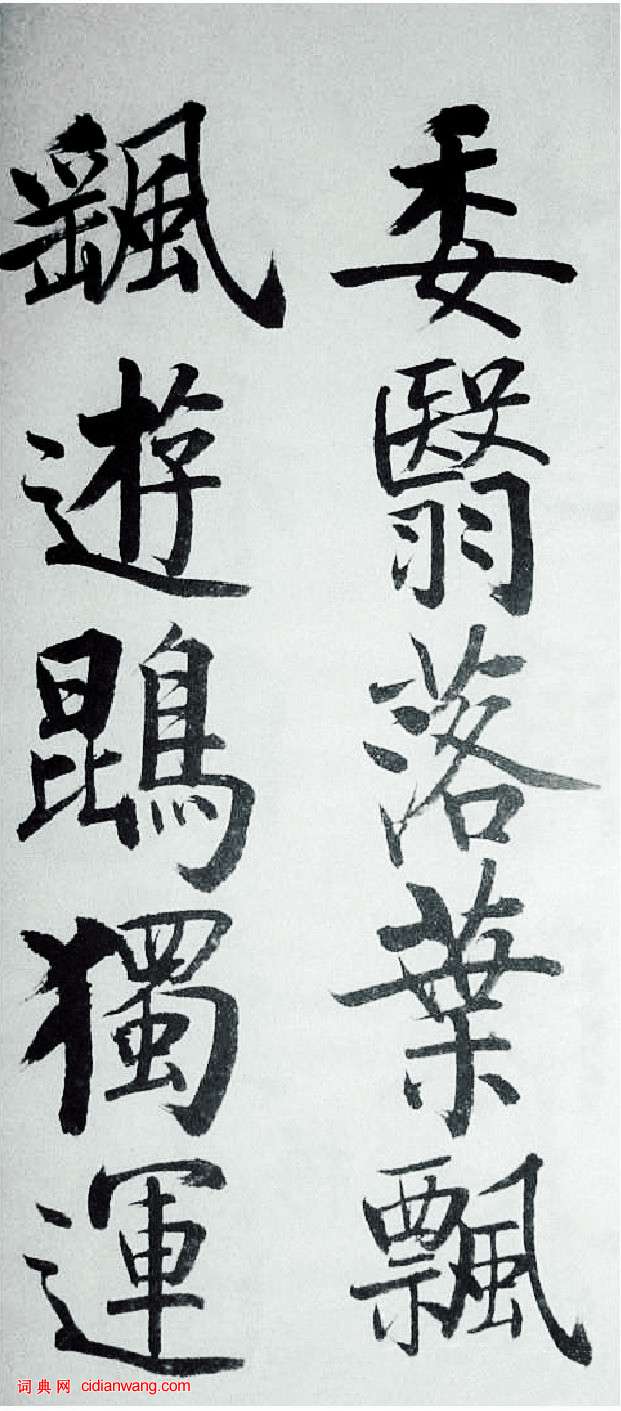 委翳落葉飄
颻遊鵾獨運
词典网 cidianwang.com